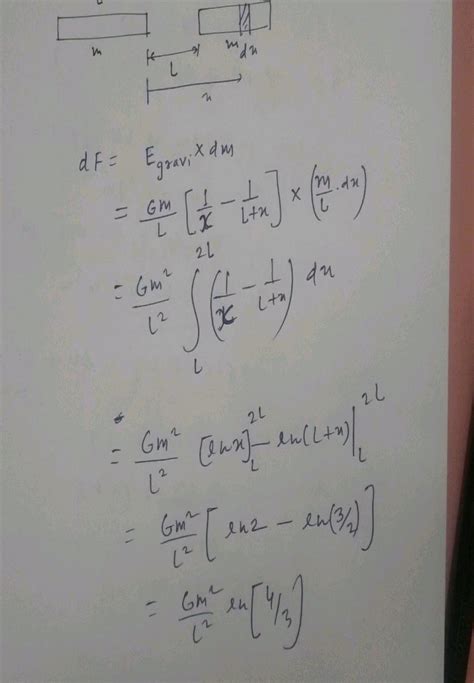 m
m
dx
L
x
dF = E gravi × dm
= Gm/L [1/x - 1/(L+x)] × (m/L · dx)
= Gm²/L² ∫_L^{2L} (1/x - 1/(L+x)) dx
= Gm²/L² [ln x]_L^{2L} - ln(L+x)|_L^{2L}
= Gm²/L² [ln2 - ln(3/2)]
= Gm²/L² ln[4/3]